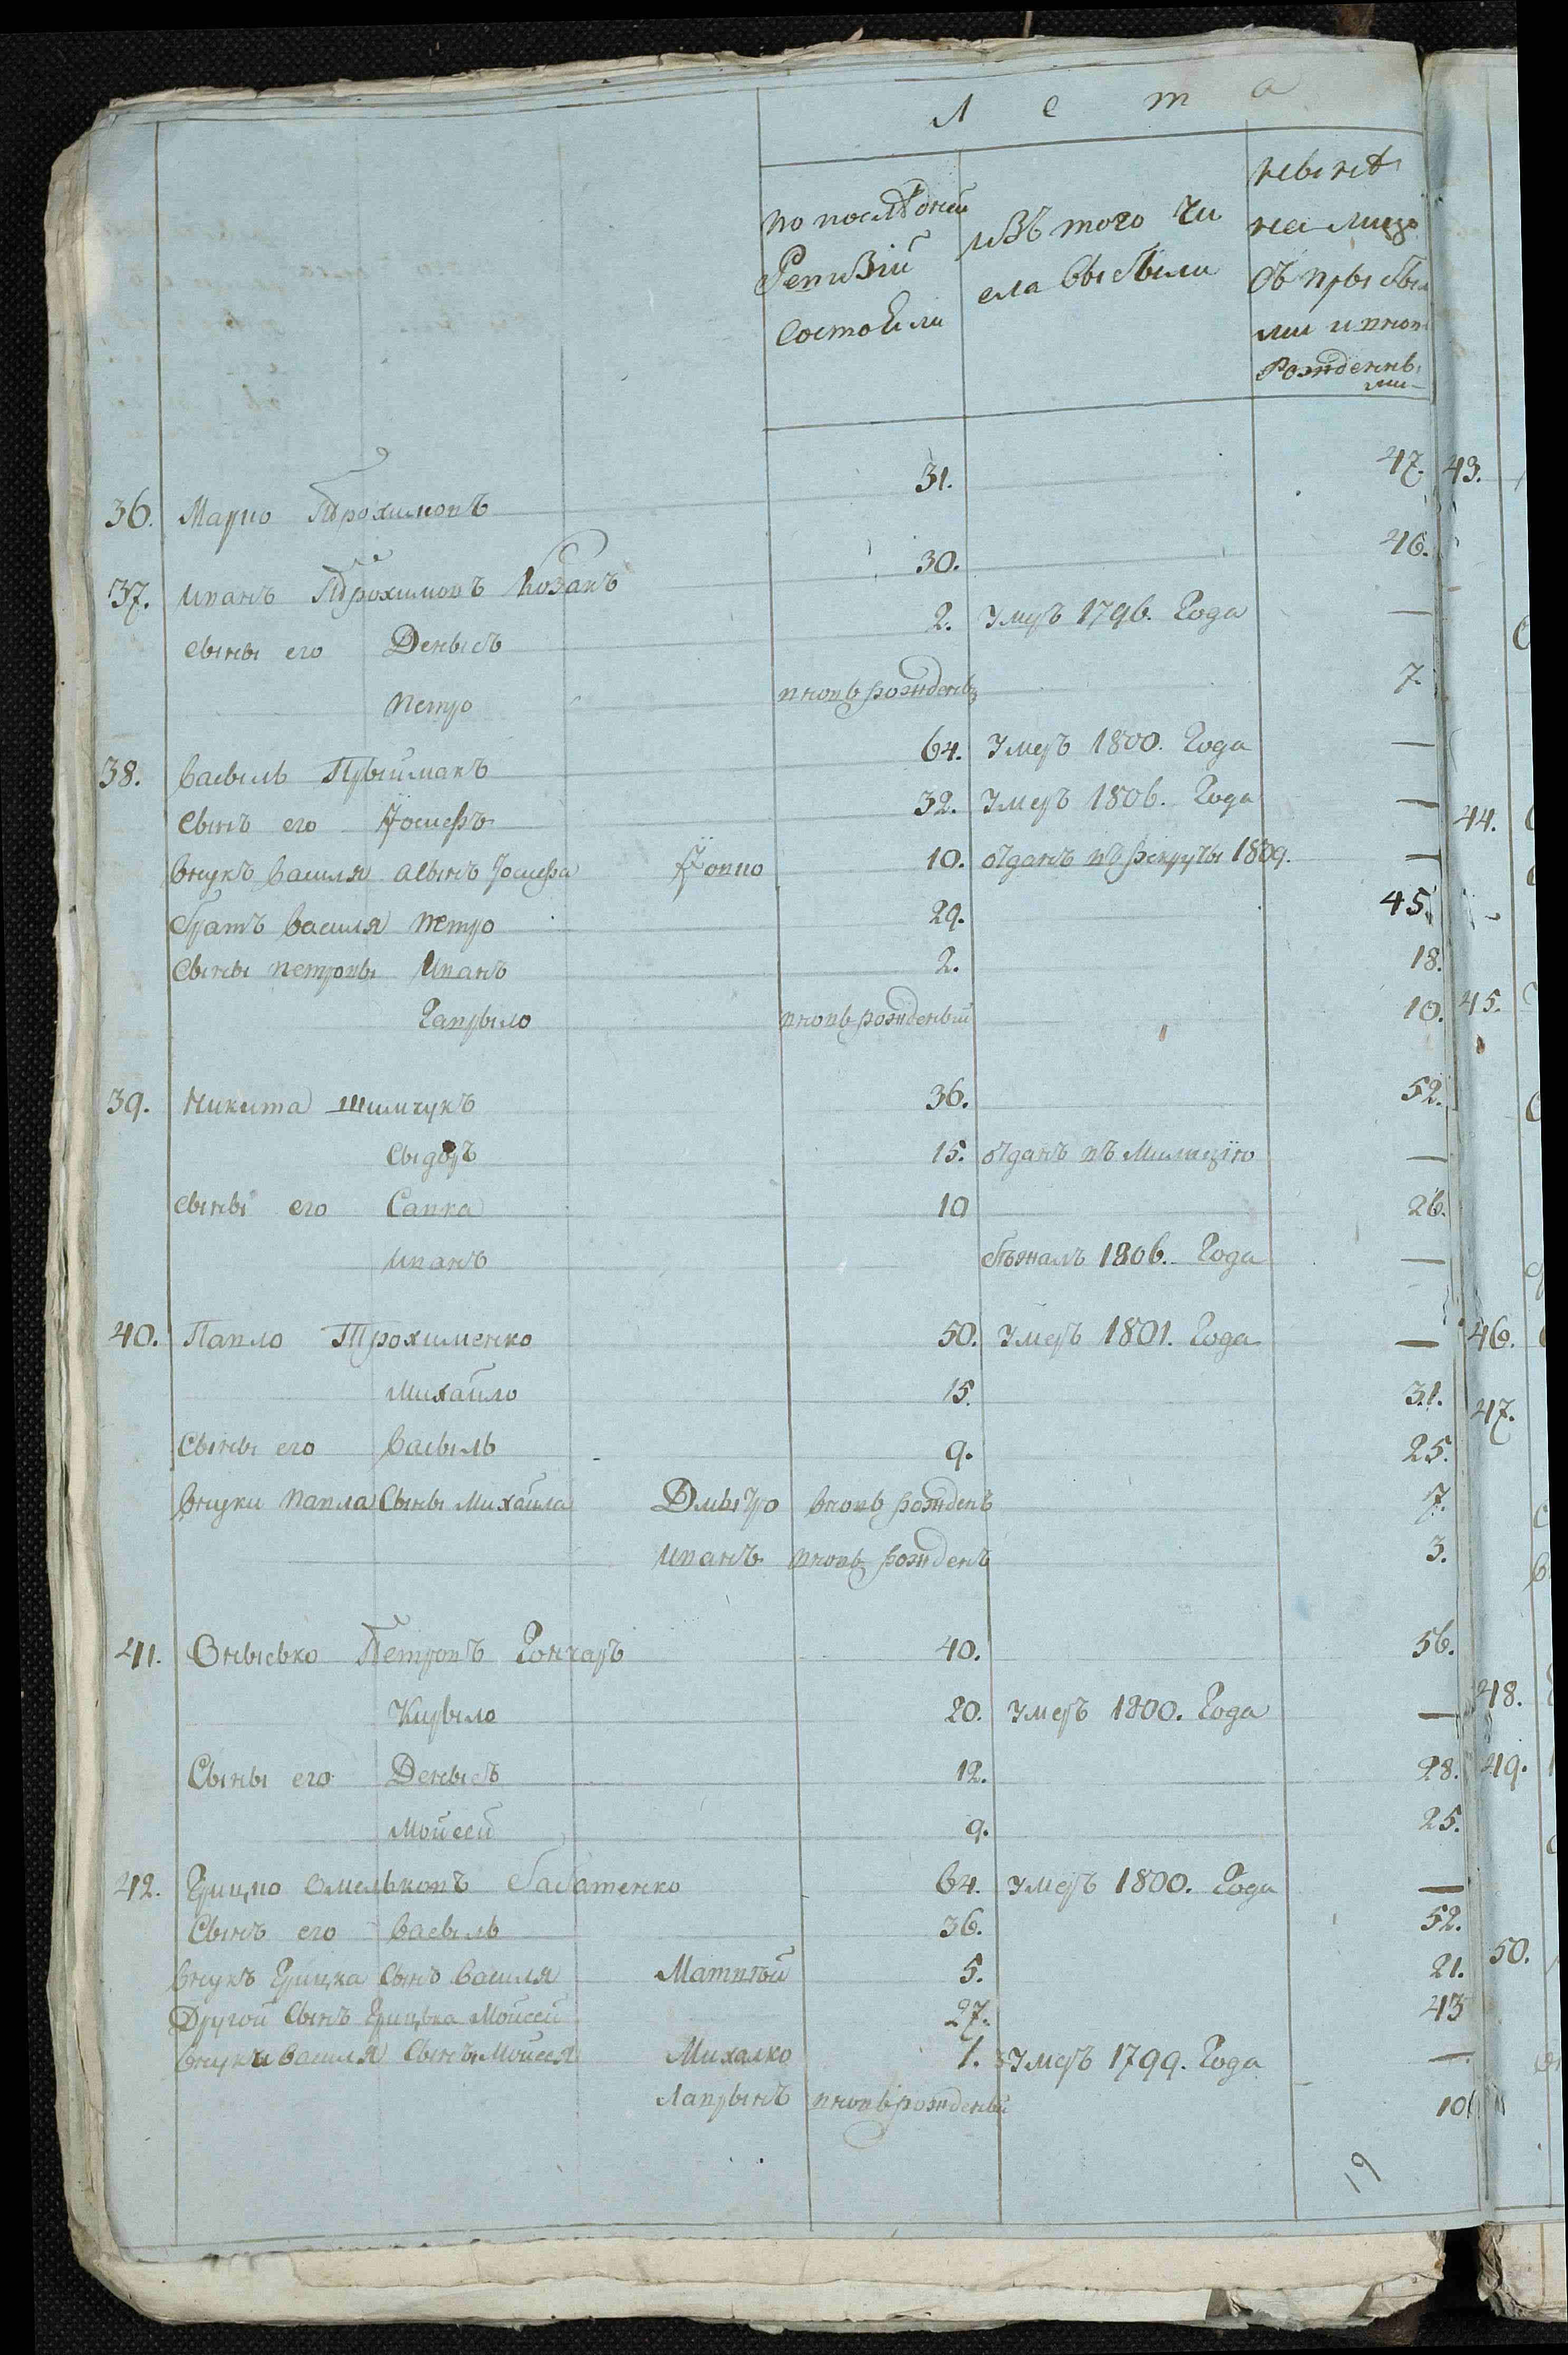 Лета
по последней
Ревизіи
Состояли
изъ того чи
сла выбыли
ныне
на лицо
съ прибыл
ми и внов
Рожденны
ми
36. Марко Трохимовъ 31. 47.
37. Иванъ Трохимовъ Козакъ 30. 46.
сыны его Денысъ 2. Умеръ 1796. Года —
Петро вновь рожденъ 7.
38. Васыль Прыймакъ 64. Умеръ 1800. Года —
Сынъ его Іосифъ 32. Умеръ 1806. Года —
Внукъ Василя а сынъ Іосифа 10. отданъ въ рекруты 1809. —
Братъ Василя Петро 29. 45.
Сыны петровы Иванъ 2. 18.
Гаврыло вновь рожденый 10.
39. Никита Шимчукъ 36. 52.
Сыдоръ 15. отданъ въ Милицію —
сыны его Савка 10 26.
Иванъ бѣжалъ 1806. Года —
40. Павло Трохименко 50. Умеръ 1801. Года —
Михайло 15. 31.
Сыны его Васыль 9. 25.
Внуки Павла Сыны Михайла Дмытро вновь рожденъ 7.
Иванъ вновь рожденъ 3.
41. Онысько Петровъ Гончаръ 40. 56.
Кирыло 20. Умеръ 1800. Года —
Сыны его Денысъ 12. 28.
Мойсей 9. 25.
42. Грицко Омельковъ Бабатенко 64. Умеръ 1800. Года —
Сынъ его Васыль 36. 52.
Внукъ Грицка Сынъ Василя Матвѣй 5. 21.
Другой Сынъ Грицька Мойсей 27. 43
внуки Василя Сыны Мойсея Михалко 1. Умеръ 1799. Года —
Лаврынъ вновь рожденый 10
19
43.
44.
45.
46.
47.
48.
49.
50.